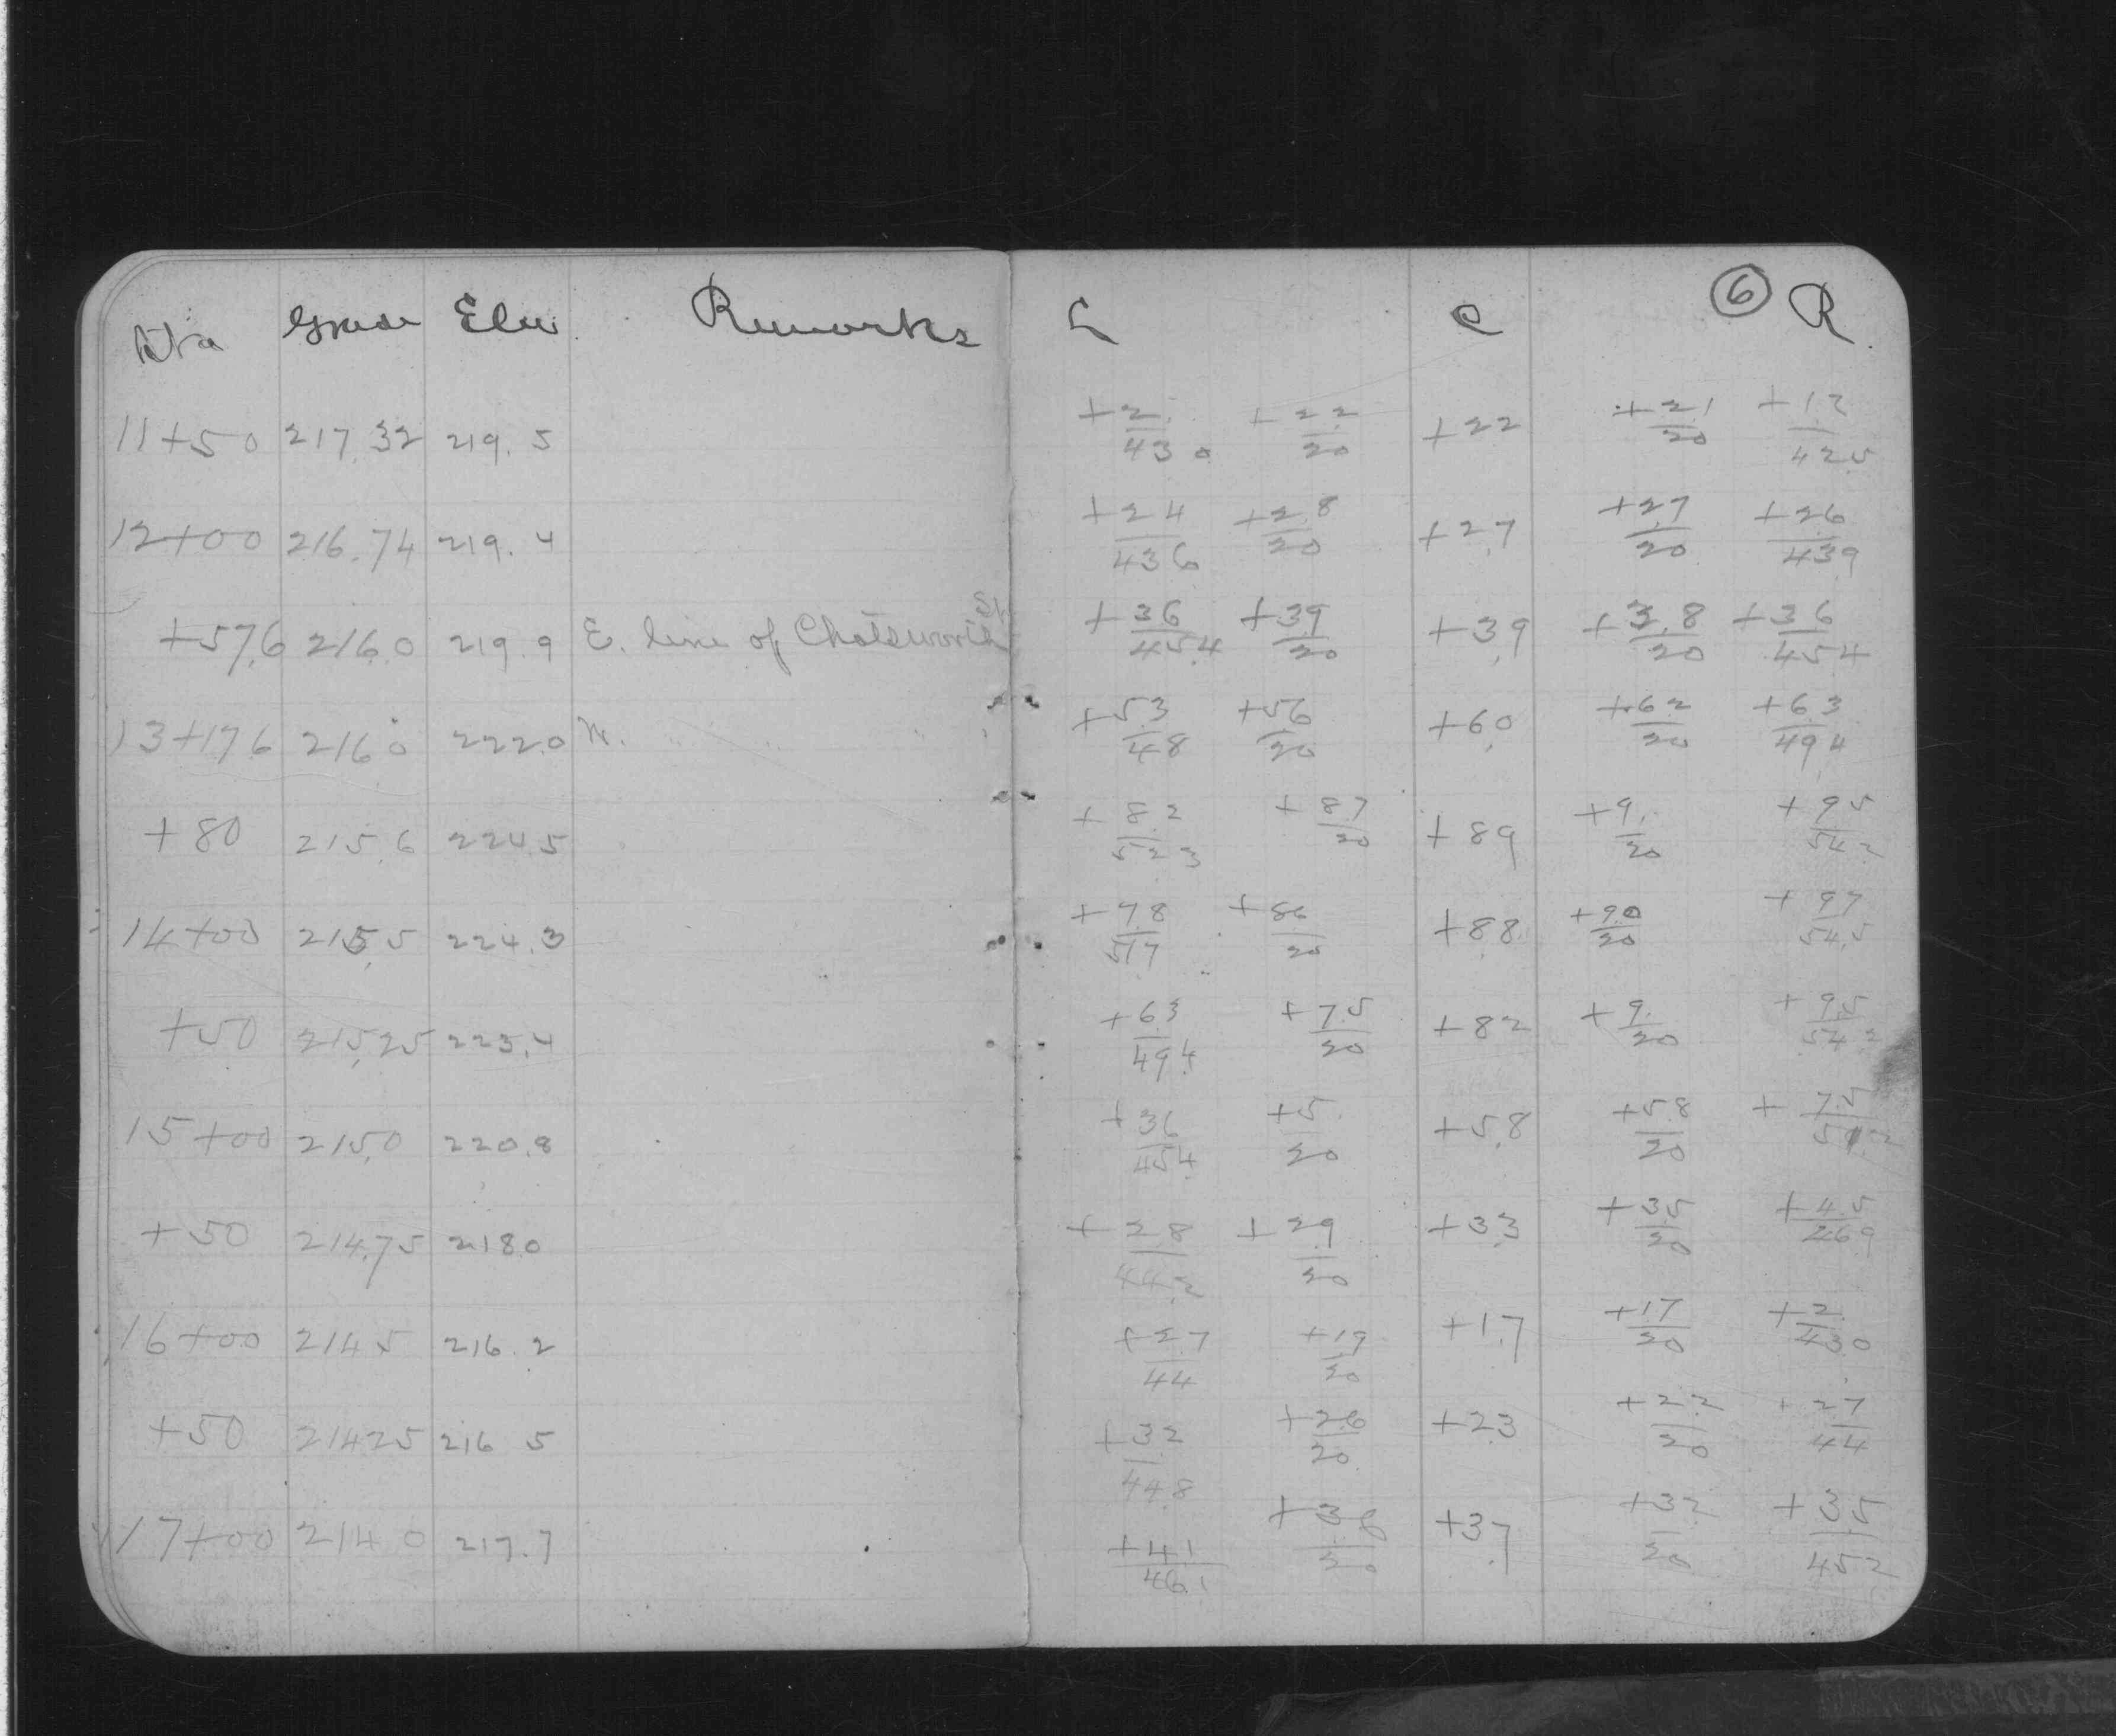 Sta Grade Elev Remarks L C 6 R
11+50 217.32 219.5 +2./43.0 +2.2/20 +2.2 +2.1/20 +1.2/42.5
12+00 216.74 219.4 +2.4/43.6 +2.8/20 +2.7 +2.7/20 +2.6/43.9
+57.6 216.0 219.9 E. line of Chatsworth St. +3.6/45.4 +3.9/20 +3.9 +3.8/20 +3.6/45.4
13+17.6 216.0 222.0 W. " " " " +5.3/48 +5.6/20 +6.0 +6.2/20 +6.3/49.4
+80 215.6 224.5 +8.2/52.3 +8.7/20 +8.9 +9./20 +9.5/54.2
14+00 215.5 224.3 +7.8/51.7 +8.6/20 +8.8 +9.0/20 +9.7/54.5
+50 215.25 223.4 +6.3/49.4 +7.5/20 +8.2 +9./20 +9.5/54.2
15+00 215.0 220.8 +3.6/45.4 +5./20 +5.8 +5.8/20 +7.5/51.2
+50 214.75 218.0 +2.8/44.2 +2.9/20 +3.3 +3.5/20 +4.5/46.9
16+00 214.5 216.2 +2.7/44 +1.9/20 +1.7 +1.7/20 +2./43.0
+50 214.25 216.5 +3.2/44.8 +2.6/20 +2.3 +2.2/20 +2.7/44
17+00 214.0 217.7 +4.1/46.1 +3.8/20 +3.7 +3.2/20 +3.5/45.2